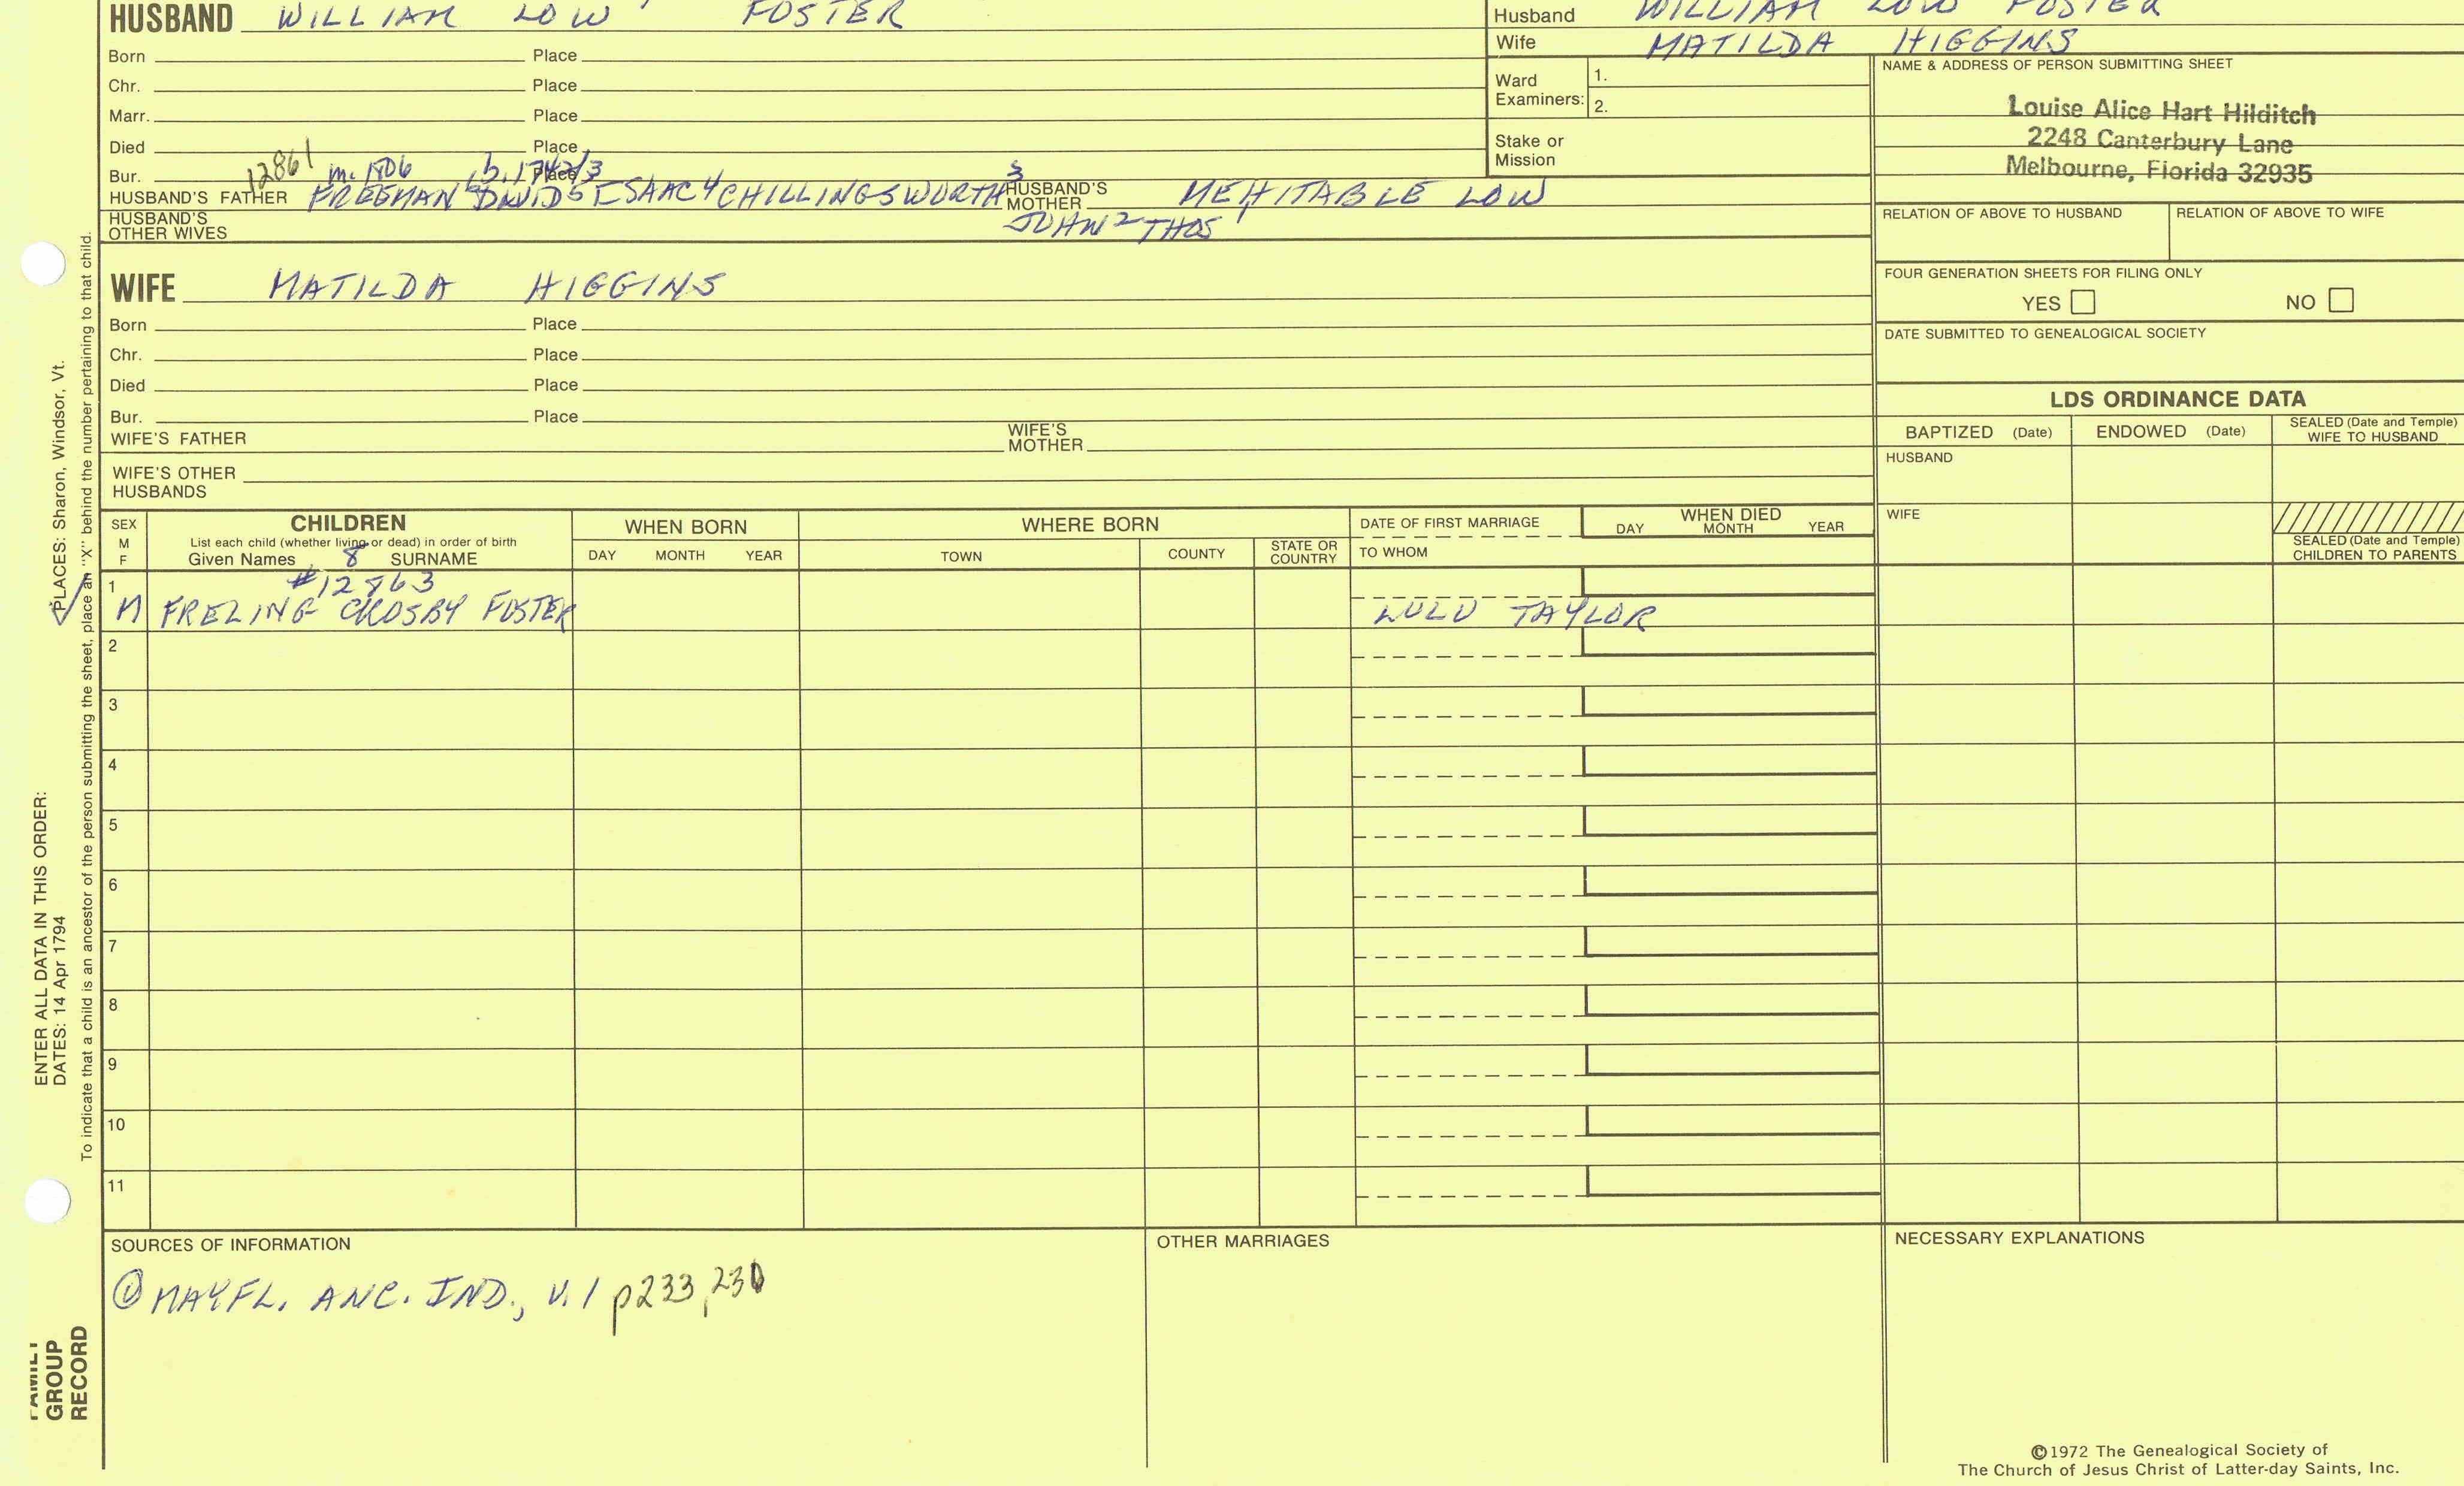 HUSBAND WILLIAM LOW FOSTER
Born Place
Chr. Place
Marr. Place
Died Place
Bur. Place
12861 m. 1806 b. 1742/3
HUSBAND'S FATHER FREEMAN 6 DAVID 5 ISAAC 4 CHILLINGSWORTH 3 HUSBAND'S MOTHER MEHITABLE LOW
HUSBAND'S OTHER WIVES JOHN 2 THOS 1
WIFE MATILDA HIGGINS
Born Place
Chr. Place
Died Place
Bur. Place
WIFE'S FATHER WIFE'S MOTHER
WIFE'S OTHER HUSBANDS
Husband WILLIAM LOW FOSTER
Wife MATILDA HIGGINS
Ward Examiners: 1.
2.
Stake or Mission
NAME & ADDRESS OF PERSON SUBMITTING SHEET
Louise Alice Hart Hilditch
2248 Canterbury Lane
Melbourne, Florida 32935
RELATION OF ABOVE TO HUSBAND RELATION OF ABOVE TO WIFE
FOUR GENERATION SHEETS FOR FILING ONLY
YES NO
DATE SUBMITTED TO GENEALOGICAL SOCIETY
LDS ORDINANCE DATA
BAPTIZED (Date) ENDOWED (Date) SEALED (Date and Temple) WIFE TO HUSBAND
HUSBAND
WIFE
SEALED (Date and Temple) CHILDREN TO PARENTS
SEX M F
CHILDREN
List each child (whether living or dead) in order of birth
Given Names 8 SURNAME
WHEN BORN
DAY MONTH YEAR
WHERE BORN
TOWN COUNTY STATE OR COUNTRY
DATE OF FIRST MARRIAGE
TO WHOM
WHEN DIED
DAY MONTH YEAR
1 #12863
M FRELING CROSBY FOSTER LULU TAYLOR
2
3
4
5
6
7
8
9
10
11
SOURCES OF INFORMATION
① MAYFL. ANC. IND., V. 1 p233,230
OTHER MARRIAGES
NECESSARY EXPLANATIONS
©1972 The Genealogical Society of
The Church of Jesus Christ of Latter-day Saints, Inc.
ENTER ALL DATA IN THIS ORDER:
DATES: 14 Apr 1794
PLACES: Sharon, Windsor, Vt.
To indicate that a child is an ancestor of the person submitting the sheet, place an "X" behind the number pertaining to that child.
FAMILY
GROUP
RECORD